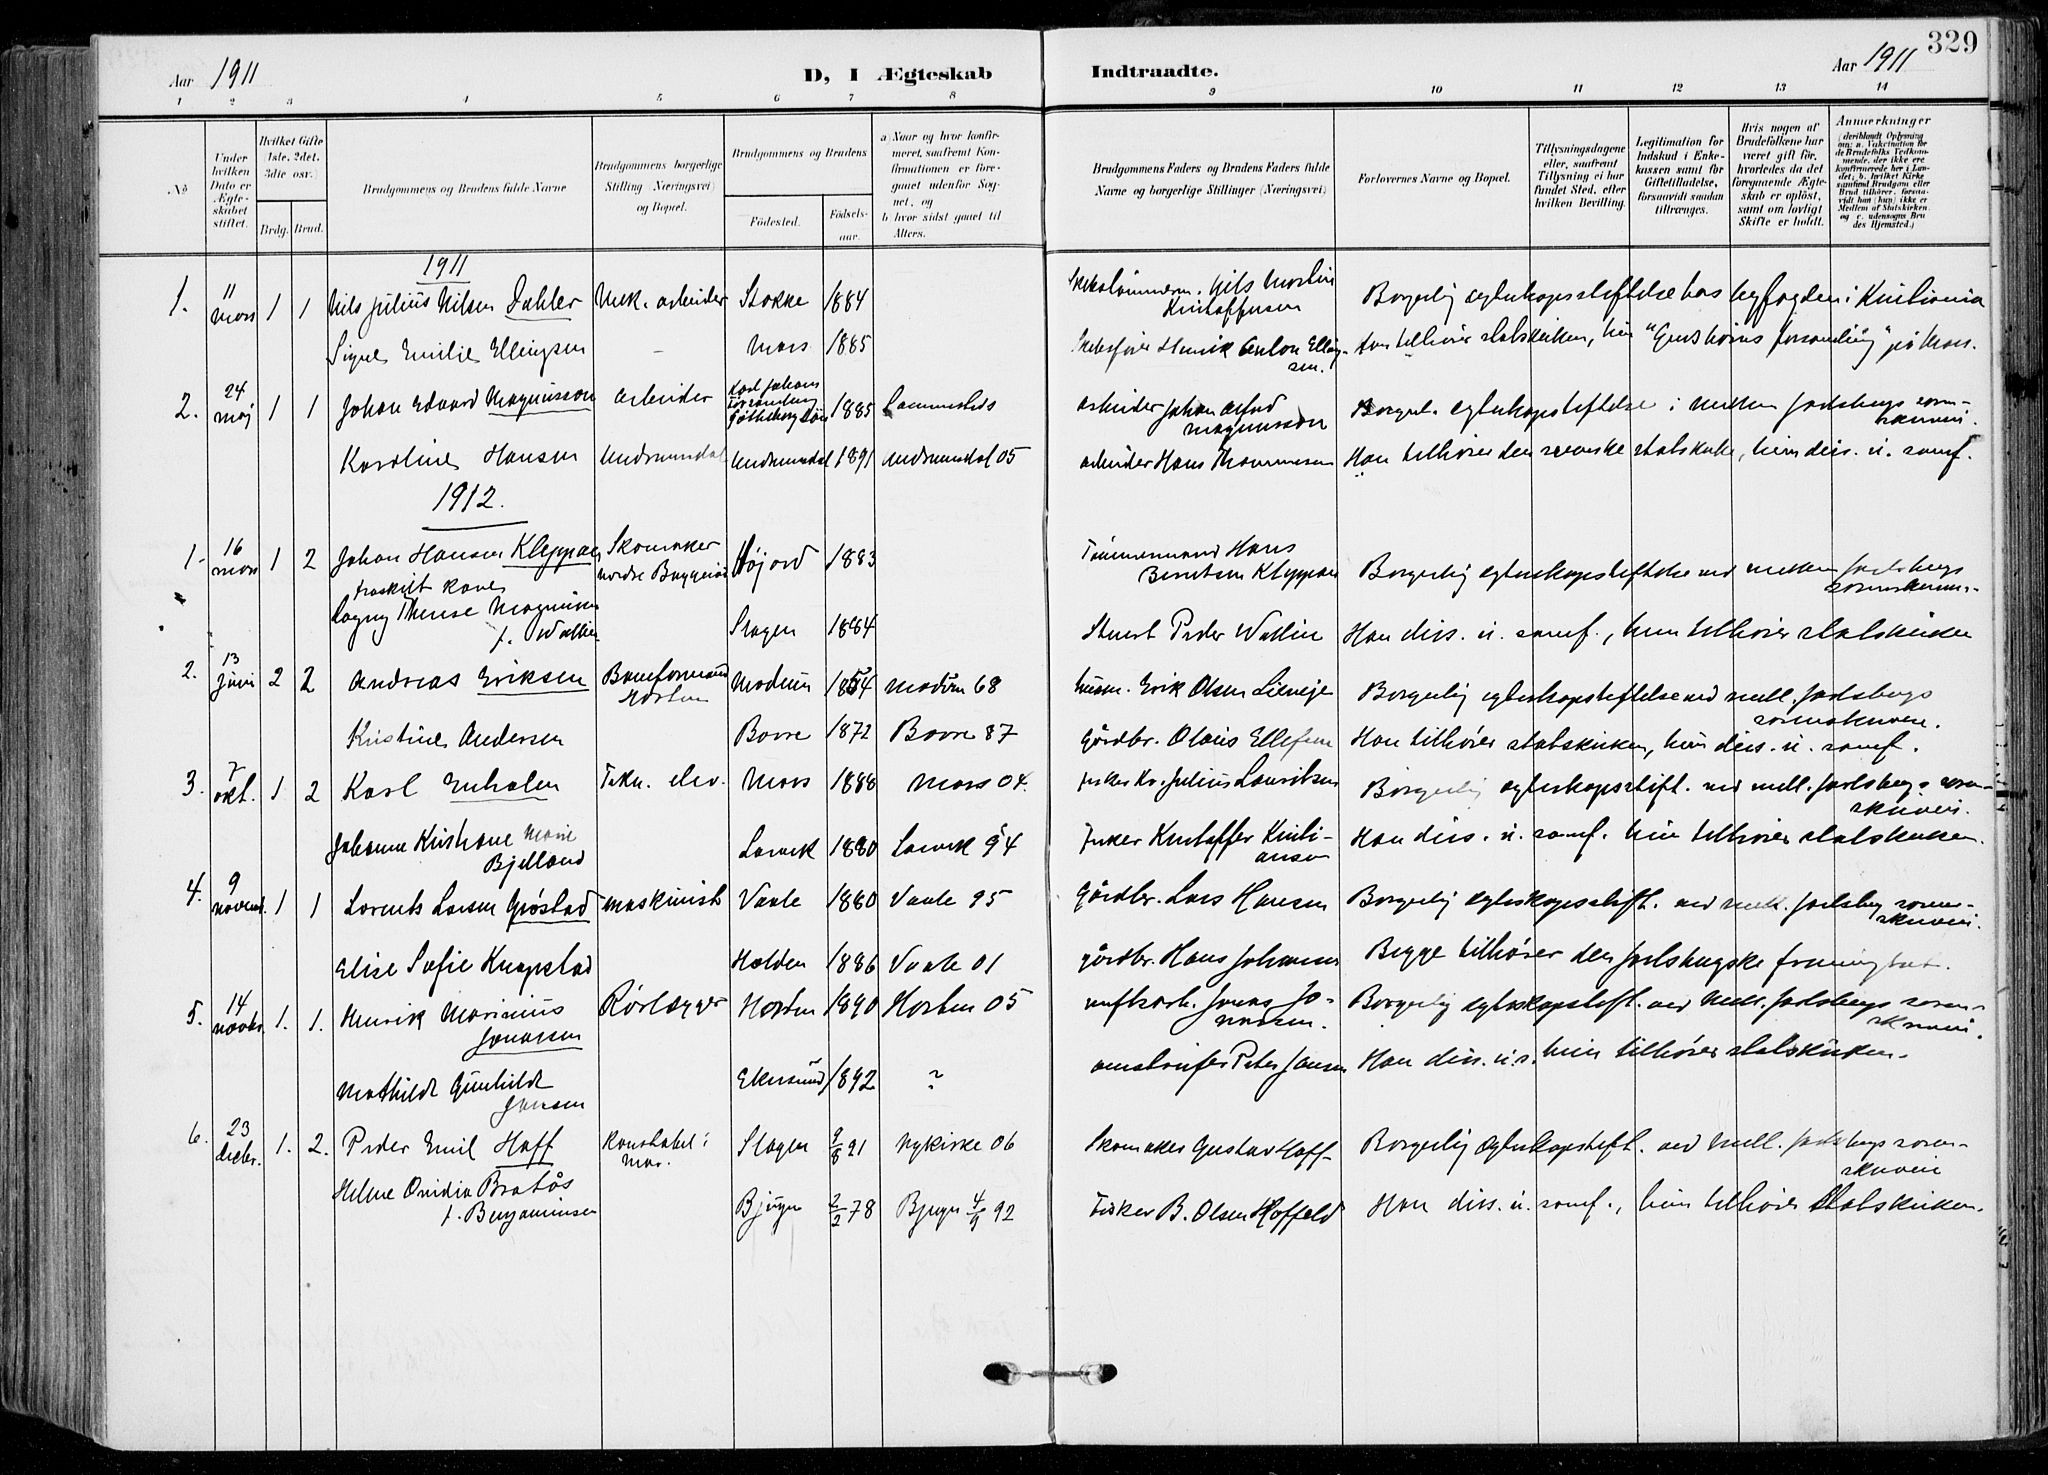 329
Aar 1911
D, I Ægteskab
Indtraadte.
Aar 1911
1 2 3 4 5 6 7 8 9 10 11 12 13 14
No
Under hvilken Dato er Ægteskabet stiftet.
Hvilket Gifte 1ste, 2det, 3die osv.)
Brdg. Brud.
Brudgommens og Brudens fulde Navne
Brudgommens borgerlige Stilling (Næringsvei) og Bopæl.
Brudgommens og Brudens
Fødested.
Fødselsaar.
a) Naar og hvor konfirmeret, saafremt Konfirmationen er foregaaet udenfor Sognet, og
b. hvor sidst gaaet til Alters.
Brudgommens Faders og Brudens Faders fulde Navne og borgerlige Stillinger (Næringsvei)
Forlovernes Navne og Bopæl.
Tillysningsdagene eller, saafremt Tillysning ei har fundet Sted, efter hvilken Bevilling.
Legitimation for Indskud i Enkekassen samt for Giftetilladelse, forsaavidt saadan tiltrænges.
Hvis nogen af Brudefolkene har været gift før, hvorledes da det foregaaende Ægteskab er opløst, samt om lovligt Skifte er holdt.
Anmerkninger
(deriblandt Oplysning om: a. Vakcination for de Brudefolks Vedkommende, der ikke ere konfirmerede her i Landet; b. hvilket Kirkesamfund Brudgom eller Brud tilhører, forsaavidt han (hun) ikke er Medlem af Statskirken, og c. udensogns Brudes Hjemsted.)
1911
1. 11 mars 1 1 Nils Julius Nilsen Dahler Mek. arbeider Stokke 1884 Nils Martin Kristoffersen Borgerlig egteskapsstiftelse hos byfogden i Kristiania
Signe Emilie Ellingsen - Moss 1885 Henrik Anton Ellingsen. Han tilhører statskirken, hun "Guds børns forsamling" på Moss.
2. 24 maj 1 1 Johan Edvard Magnusson arbeider Karl Johans Församling Götheborg 1885 arbeider Johan Alfred Magnusson Borgerl. egteskapsstiftelse i mellem Jarlsbergs sorenskriveri.
Karoline Hansen Undrumsdal Undrumsdal 1891 Undrumsdal 05 arbeider Hans Thommesen Han tilhører den svenske statskirke, hun diss. u. samf.
1912.
1. 16 mars 1 2 Johan Hansen Kleppan Skomaker nordre Høijord 1883 Tømmermand Hans Berntsen Kleppan Borgerlig egteskapsstiftelse ved mellem Jarlsbergs sorenskriveri.
fraskilt kone Dagny Therese Magnussen f. Wallin Slagen 1884 Stuert Peder Wallin Han diss. u. samf., hun tilhører statskirken
2. 13 juni 2 2 Andreas Eriksen Baneformand Horten Modum 1854 Modum 68 husm. Erik Olsen Borgerlig egteskapsstiftelse ved mell. Jarlsbergs sorenskriveri.
Kristine Andersen Borre 1872 Borre 87 Gårdbr. Olaus Ellefsen Han tilhører statskirken, hun diss. u. samf.
3. 7 okt. 1 2 Karl Enholm Tekn. elev. Moss 1888 Moss 04. Julius Lauritsen Borgerlig egteskapsstift. ved mell. Jarlsbergs sorenskriveri.
Johanne Kristiane Marie Bjelland Larvik 1880 Larvik 94 Fisker Kristoffer Kristiansen Han diss. u. samf. hun tilhører statskirken.
4. 9 novemb. 1 1 Lorents Larsen Grøstad maskinist Vaale 1880 Vaale 95 Gårdbr. Lars Hansen Borgerlig egteskapsstift. ved mell. Jarlsberg sorenskriveri.
Elise Sofie Knapstad Halden 1886 Vaale 01 gårdbr. Hans Johansen Begge tilhører den Jarlsbergske frimenighet.
5. 14 novbr. 1. 1. Henrik Marinius Jonassen Rørlegger Horten 1890 Horten 05 verftsarb. Jonas Jonassen. Borgerlig egteskapsstift. ved Mell. Jarlsbergs sorenskriveri.
Mathilde Gunhilde Jansen Ekersund 1892 ? Peter Jansen Han diss. u. s. hun tilhører statskirken.
6. 23 decbr. 1. 2. Peder Emil Hoff Konstabel i Mar. Slagen 9/8 91 Nykirke 06 Skomaker Gustav Hoff Borgerlig egteskapsstift. ved Mell. Jarlsbergs sorenskriveri
Helene Ovidia Bratås f. Benjaminsen Bjugn 2/2 78 Bjugn 4/9 92 Fisker B. Olsen Hoffeld Han diss. u. samf., hun tilhører Statskirken.